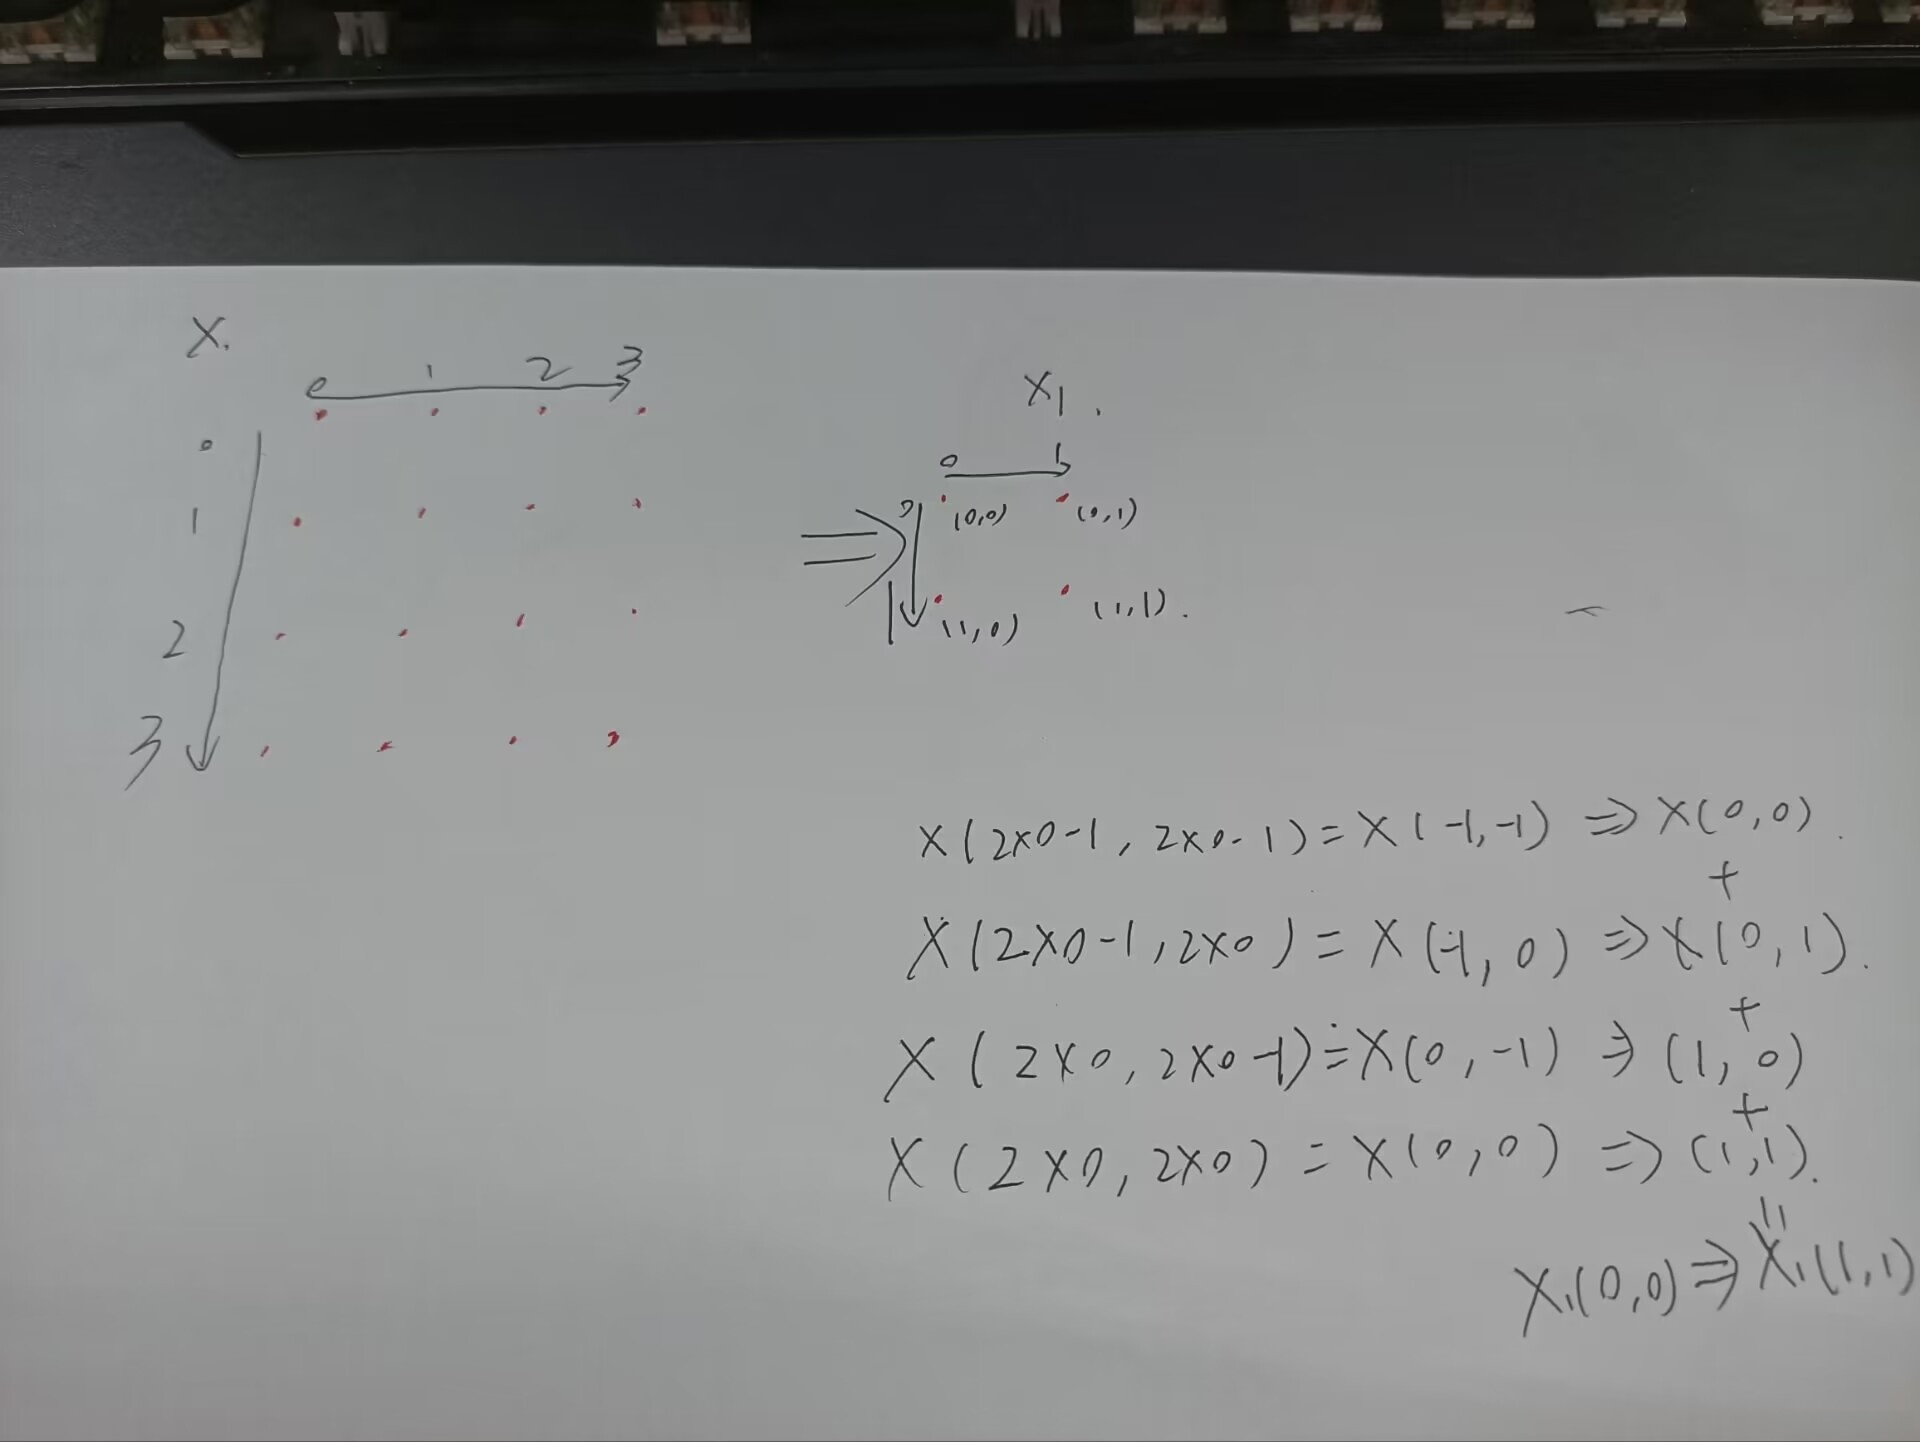 X.
0 1 2 3
0
1
2
3
X1.
0 1
0 (0,0) (0,1)
⇒
1 (1,0) (1,1).
X(2×0-1, 2×0-1)=X(-1,-1) ⇒ X(0,0).
+
X(2×0-1, 2×0) = X(-1, 0) ⇒ X(0, 1).
+
X(2×0, 2×0-1)=X(0,-1) ⇒ (1, 0)
+
X(2×0, 2×0) = X(0,0) ⇒ (1,1).
=
X1(0,0) ⇒ X1(1,1)